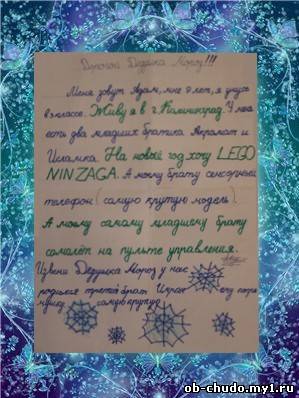 Дорогой Дедушка Мороз!!!
Меня зовут Адам, мне 9 лет, я учусь
в 3 классе. Живу я в г. Калининград. У меня
есть два младших братика
и
Исламка. На новый год хочу LEGO
NINZAGA. А моему брату сенсорный
телефон (самую крутую модель).
А моему самому младшему брату
самолёт на пульте управления.
Извени Дедушка Мороз у нас
родился третей брат
ему погре
мушку самую крутую
ob-chudo.my1.ru